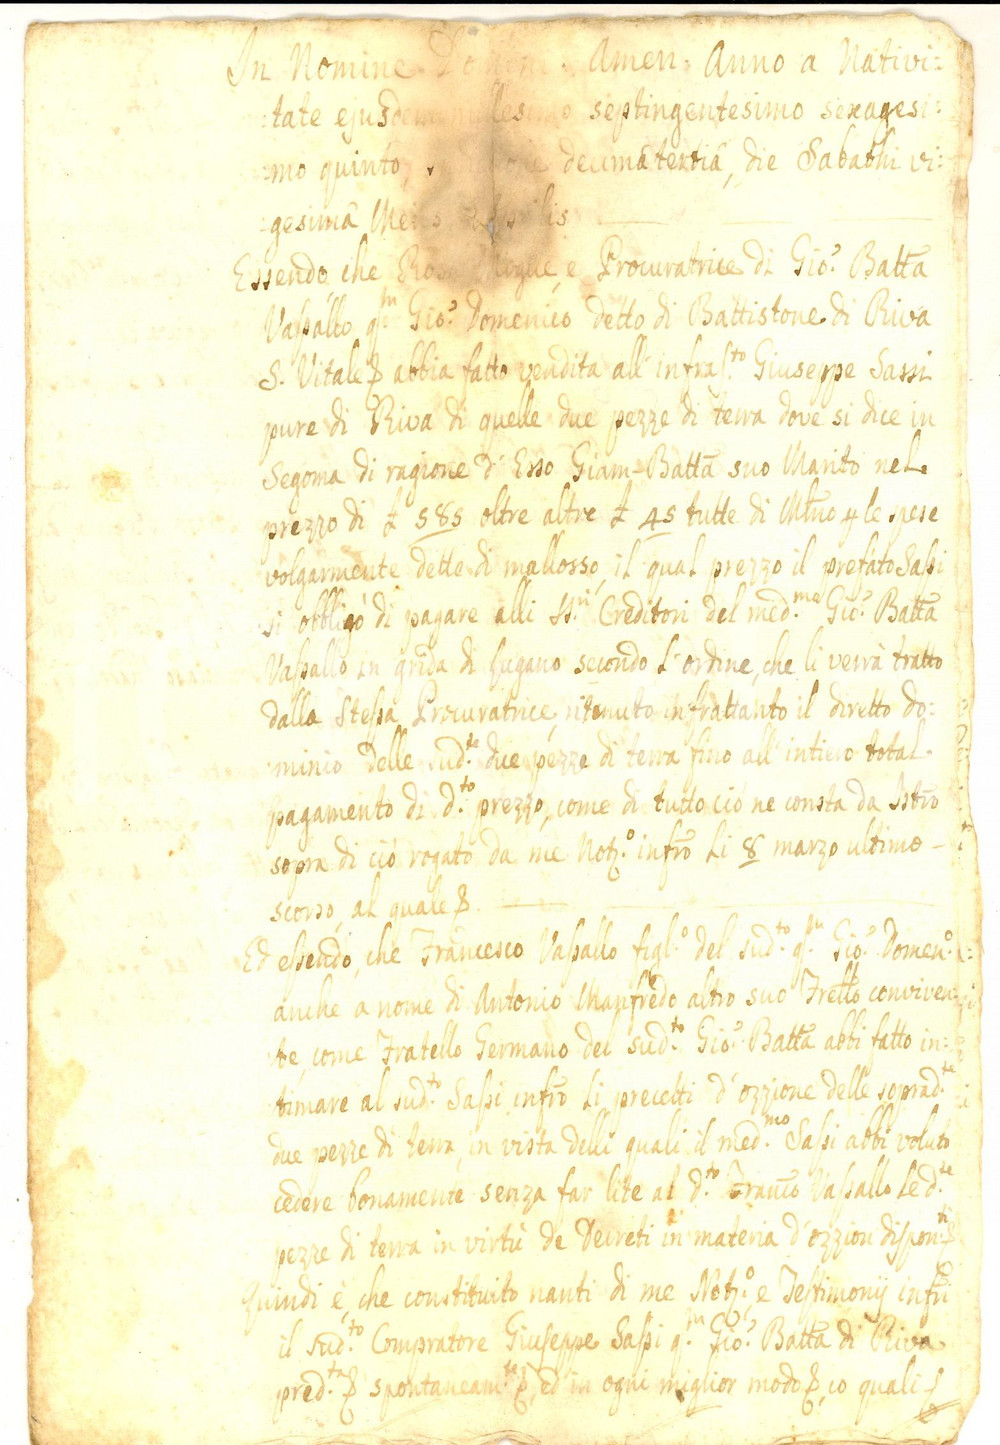 In Nomine Domini. Amen. Anno a Nativi=
=tate ejusdem millesimo septingentesimo sexagesi=
=mo quinto, decimâtertiâ, die Sabathi vi=
=gesimâ Mensis Aprilis
Essendo che moglie, e Procuratrice di Gio: Batta
Vassallo q.m Gio: Domenico detto di Battistone di Riva
S. Vitale abbia fatto vendita all' infras.to Giuseppe Sassi
pure di Riva di quelle due pezze di terra dove si dice in
Segoma di ragione d' Esso Giam-Batta suo Marito nel
prezzo di £ 585 oltre altre £ 45 tutte di Mlno le spese
volgarmente dette di mallosso, il qual prezzo il prefato Sassi
si obbligò di pagare alli SS.ri Creditori del med.me Gio: Batta
Vassallo in grida di Lugano secondo l' ordine, che li verrà tratto
dalla stessa Procuratrice, ritenuto infrattanto il diretto do=
=minio delle sud.te due pezze di terra fino all' intiero total
pagamento di d.to prezzo, come di tutto ciò ne consta da Istro
sopra di ciò rogato da me Notº infro li 8 marzo ultimo
scorso, al quale
Ed essendo, che Francesco Vassallo figl.º del sud.to q.m Gio: Domen.º
anche a nome di Antonio Manfredo altro suo Frello conviven=
te, come Fratello Germano del sud.to Gio: Batta abbi fatto in=
timare al sud.to Sassi infro li precetti d' ozzione delle soprad.te
due pezze di terra, in vista delli quali il med.mo Sassi abbi voluto
cedere bonamente senza far lite al d.to Franco Vassallo le d.te
pezze di terra in virtù de Decreti in materia d' ozzion dispon.ti
Quindi è, che constituito nanti di me Notº, e Testimonij infri
il sud.to Compratore Giuseppe Sassi q.m Gio: Batta di Riva
pred.ta spontaneam.te, ed in ogni miglior modo, co quali